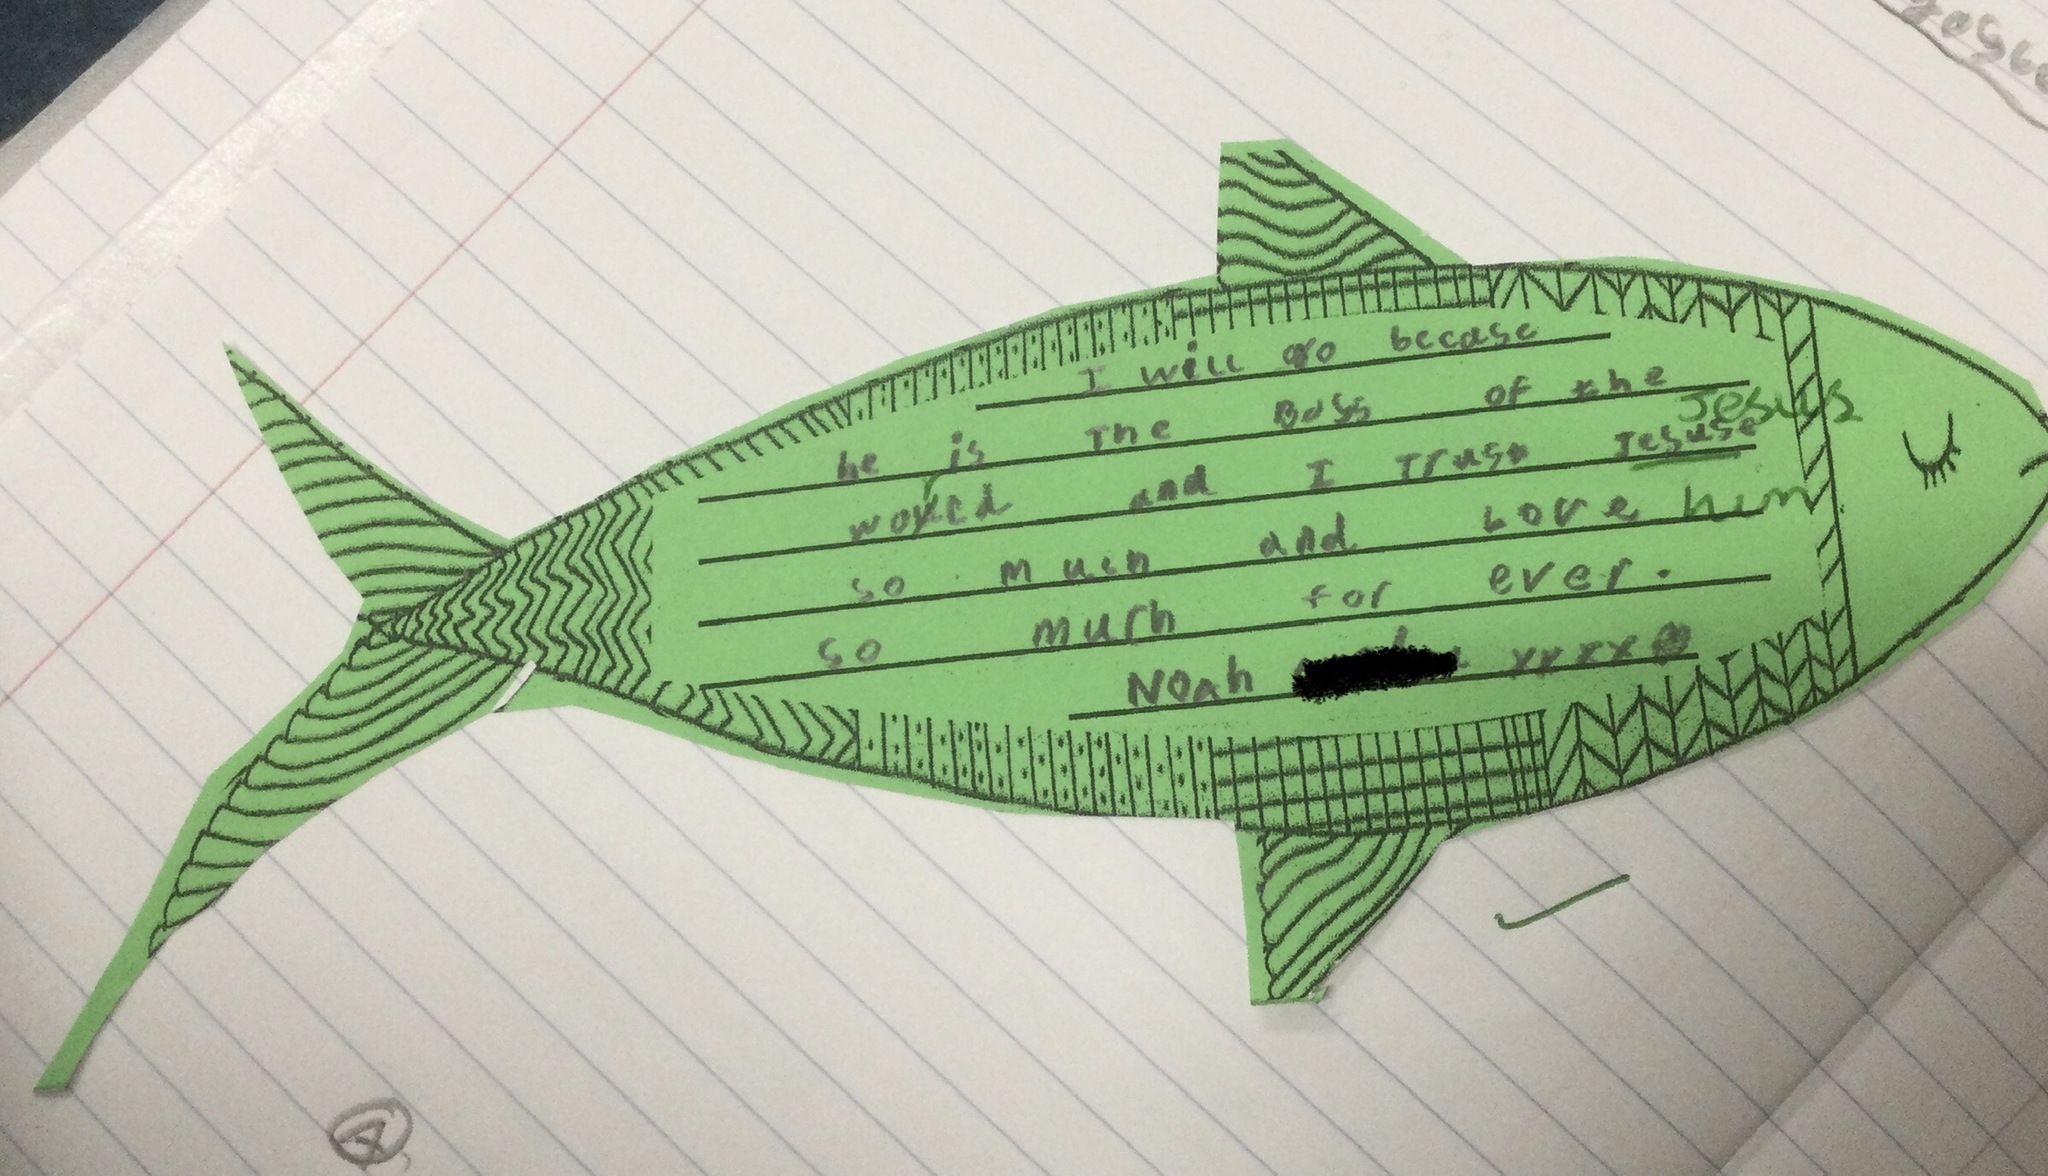 I will go becase
he is The Boss of the
world and I Trust Jesuse
Jesus
so much and love him
so much for ever.
Noah xxxx